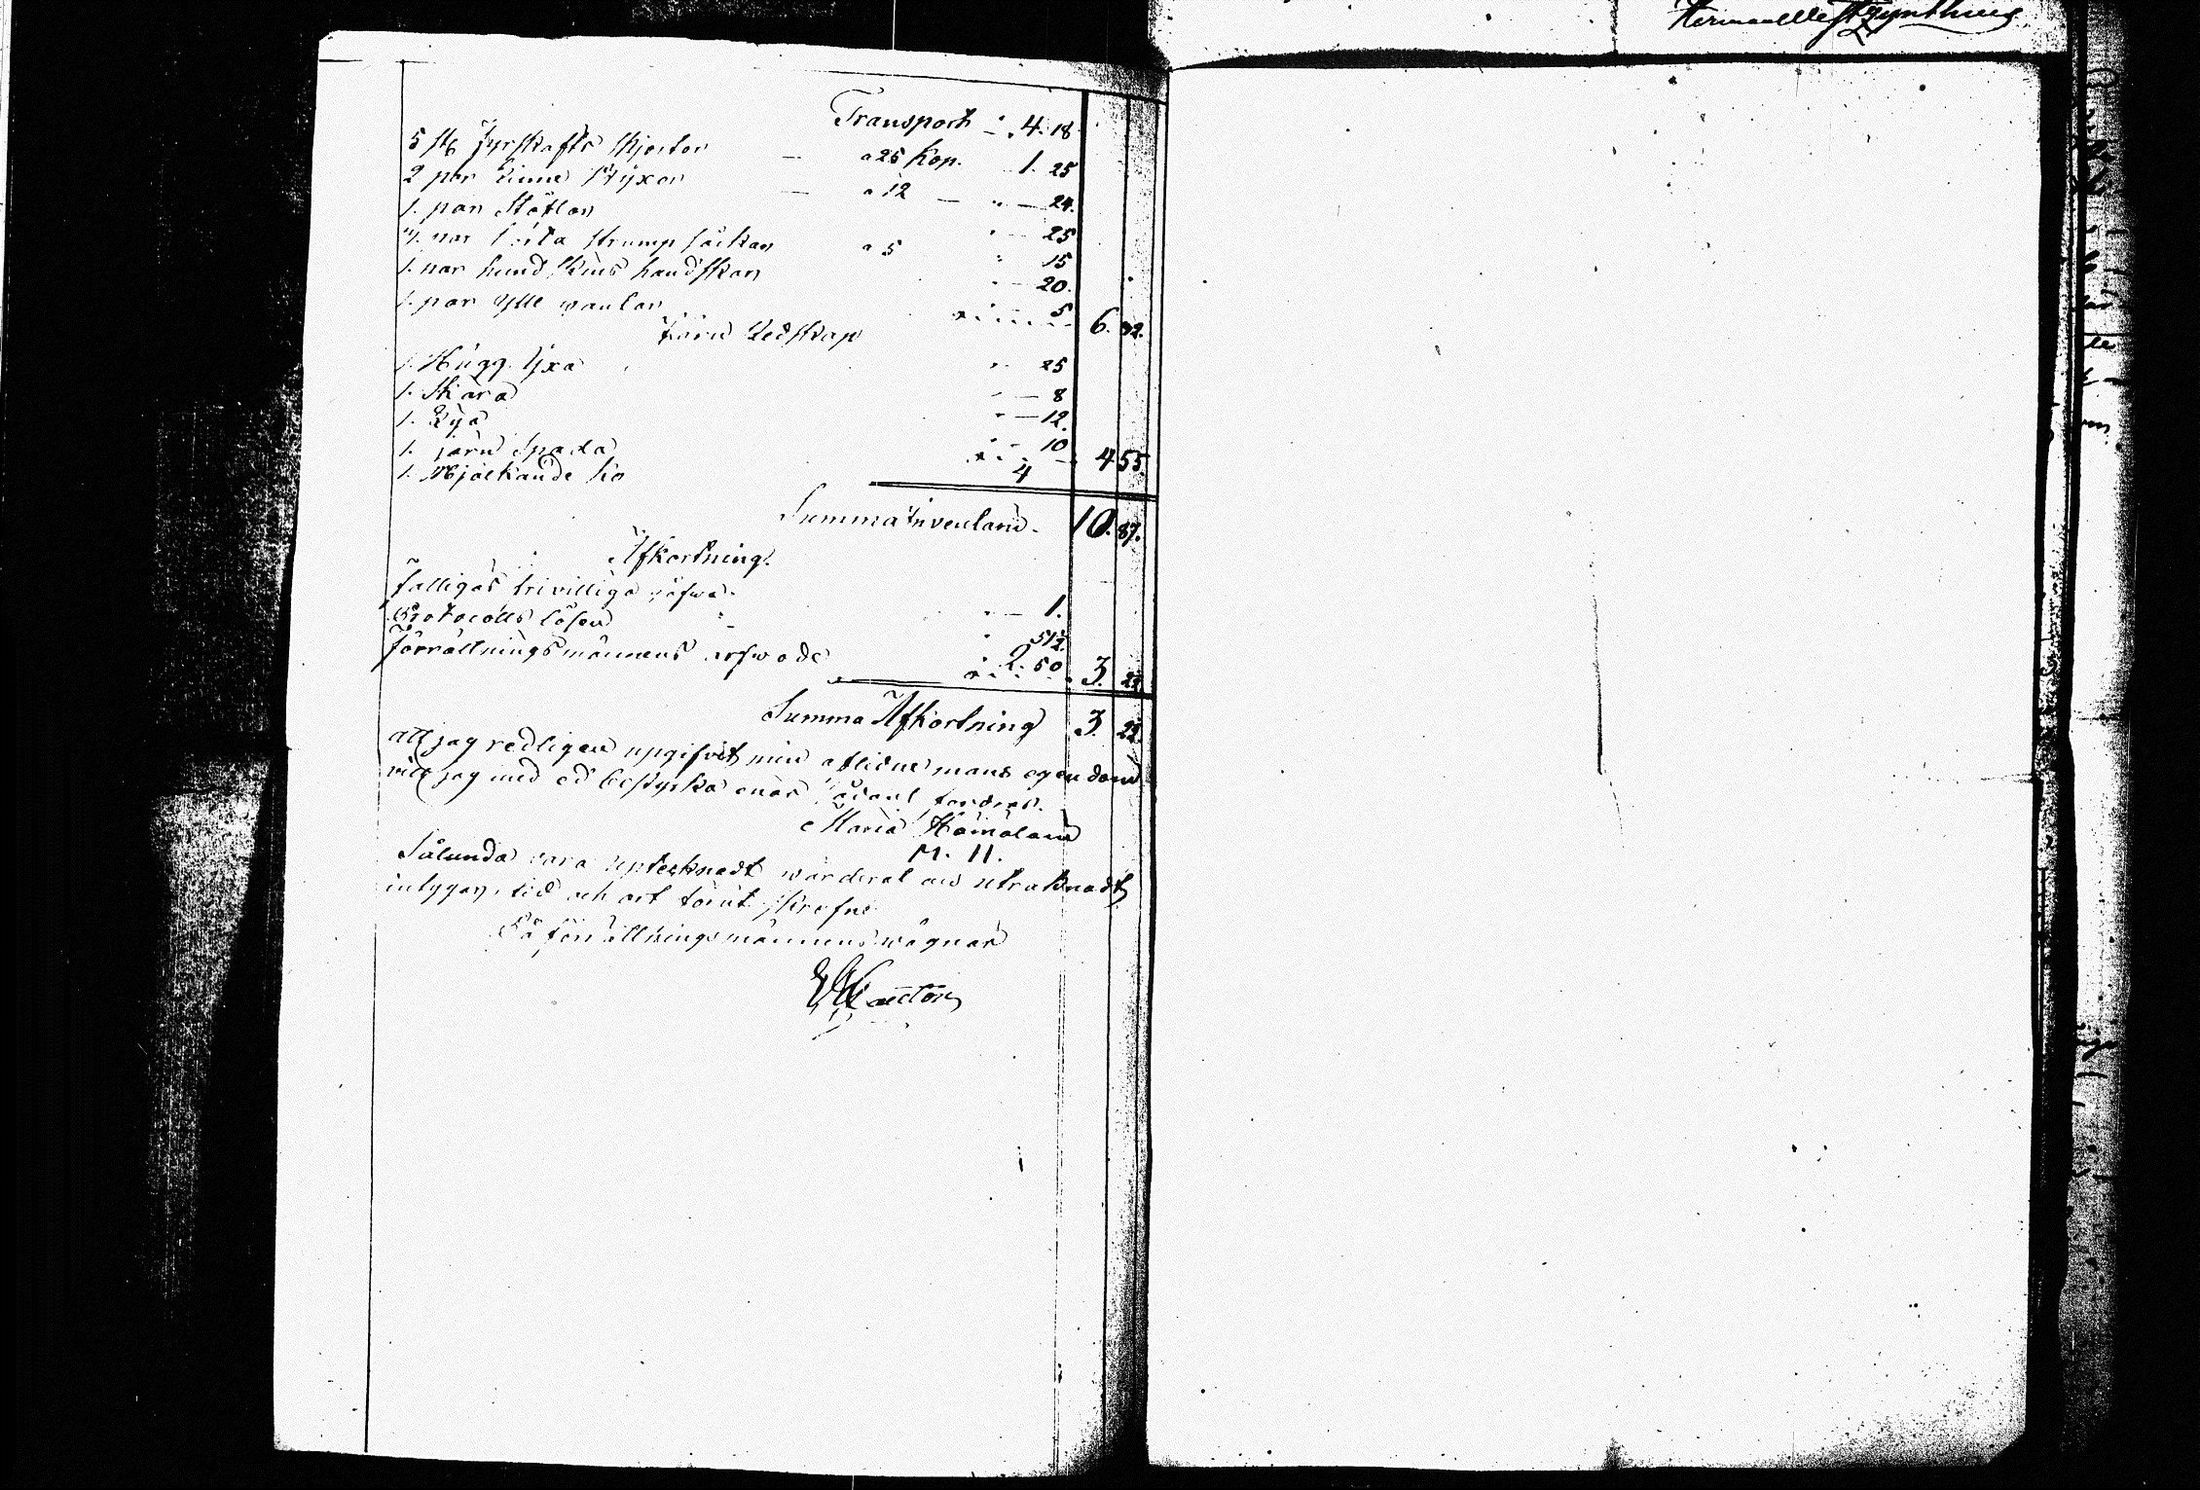 Herman
Transport " 4. 18
5 st. fyrskafts skjortor — a 25 kop. 1. 25
2 par Linne Byxor — a 12 — " — 24.
1. par Stöflar " — 25
par strump sackar a 5 " 15
1. par hund skins handskar " — 20.
1. par ylle vantar " 5 6. 32.
Järn Redskap
1. Hugg Yxa " 25
1. Skära " — 8
1. Lya " — 12.
1. järn Spada " 10
1. Mjölkande ko 4 4 55.
Summa Inventarii. 10. 87.
Afkortning.
Fattigas frivilliga gåfwa. " — 1.
Protocolls lösen " 51½
Förrättningsmännens arfwode 2. 50 3.
Summa Afkortning 3.
att jag redligen upgifvit min aflidne mans egendom
vill jag med ed bestyrka enär sådant fordras.
Maria Hämäläin
M. H.
Sålunda vara upteecknadt värderat och uträknadt
intygar, tid och ort förut skrefne
På förrättningsmännens vägnar